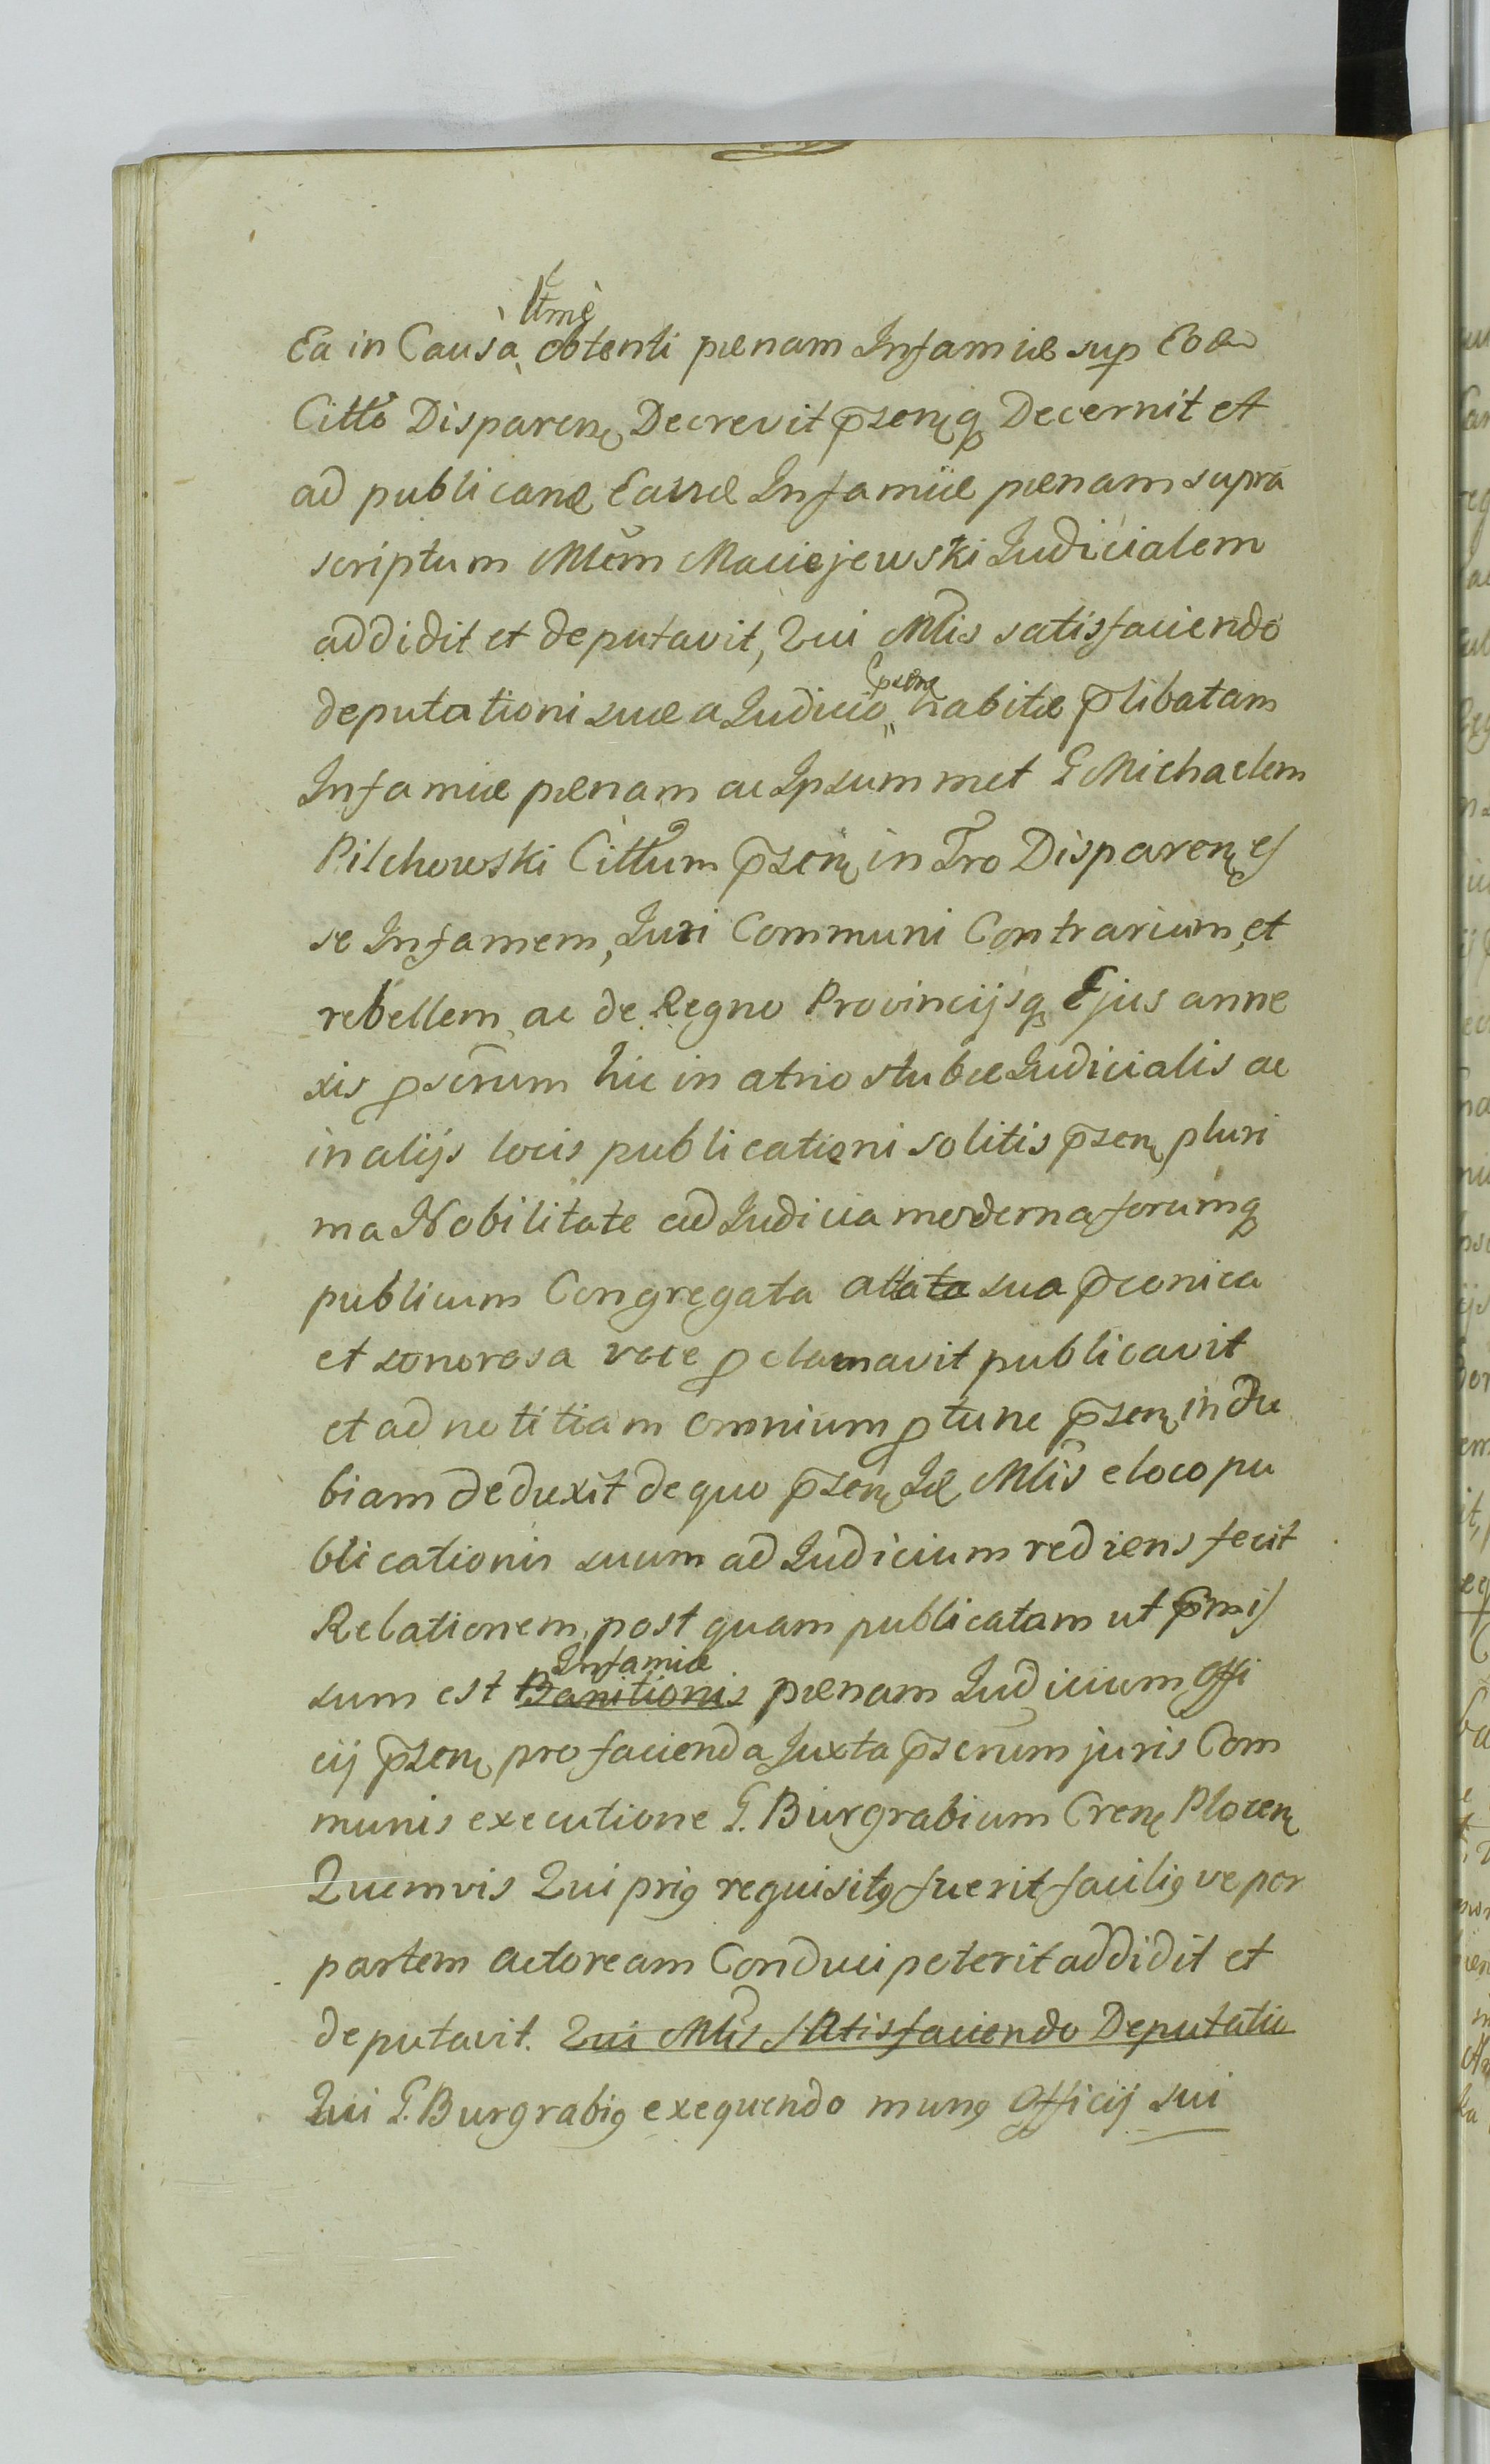 Ea in Causa ltme obtenti pœnam Infamiæ sup Eod
Citto Disparen Decrevit p̄senq Decernit et
ad publicanæ Easdæ Infamiæ pœnam supra
scriptum Mlem Maciejewski Judicialem
addidit et deputavit, Qui Mlis satisfaciendo
deputationi suæ a Judicio psene habitæ p̄libatam
Infamiæ pœnam ac Ipsum met G Michaelem
Pilchowski Cittum p̄sen in Tro Disparen es
se Infamem, Juri Communi Contrarium, et
rebellem, ac de Regno Provincijsq Ejus anne
xis pscrum hic in atrio stubæ Judicialis ac
in alijs locis publicationi solitis p̄sen pluri
ma Nobilitate ad Judicia moderna forumq
publicum Congregata sua p̄conica
et sonorosa voce pclamavit publicavit
et ad notitiam omnium ptunc p̄sen in du
biam deduxit de quo p̄sen Mlis e loco pu
blicationis suum ad Judicium rediens fecit
Relationem, post quam publicatam ut p̄mis
sum est Banitionis Infamiæ pœnam Judicium offi
cij p̄sen pro facienda Juxta p̄scrum juris Com
munis executione G. Burgrabium Cren Plocen
Quemvis Qui prig requisitg fuerit facilig ve per
partem actoream Conduci poterit addidit et
deputavit. Qui Mlis Satisfaciendo Deputatio
Qui G. Burgrabig exequendo mung officij sui